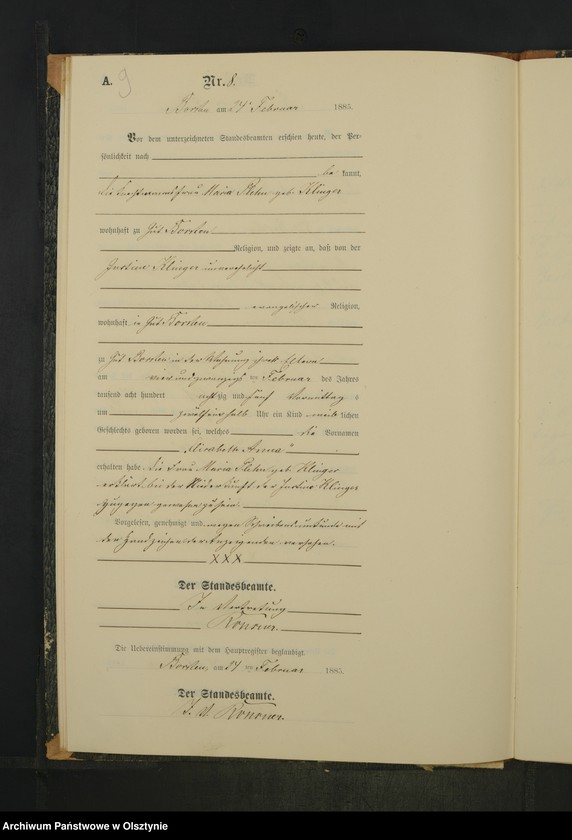 A. 9
Nr. 8.
Borken am 24ten Februar 1885.
Vor dem unterzeichneten Standesbeamten erschien heute, der Per-
sönlichkeit nach
be kannt,
die frau Maria Plehn geb. Klinger
wohnhaft zu Gut
Religion, und zeigte an, daß von der
Justine Klinger unverehelicht
evangelischer Religion,
wohnhaft in Gut
zu Gut in der Wohnung ihrer Eltern
am vierundzwanzigsten Februar des Jahres
tausend acht hundert achtzig und fünf Vormittag s
um Uhr ein Kind weib lichen
Geschlechts geboren worden sei, welches die Vornamen
Elisabeth Anna
erhalten habe. Die Frau Maria Plehn geb. Klinger
erklärt bei der Niederkunft der Justine Klinger
zugegen gewesen zu sein.
Vorgelesen, genehmigt und wegen Schreibensunkunde mit
den Handzeichen der Anzeigenden versehen.
XXX
Der Standesbeamte.
In Vertretung
Die Uebereinstimmung mit dem Hauptregister beglaubigt.
am 24ten Februar 1885.
Der Standesbeamte.
I. V.
Archiwum Państwowe w Olsztynie